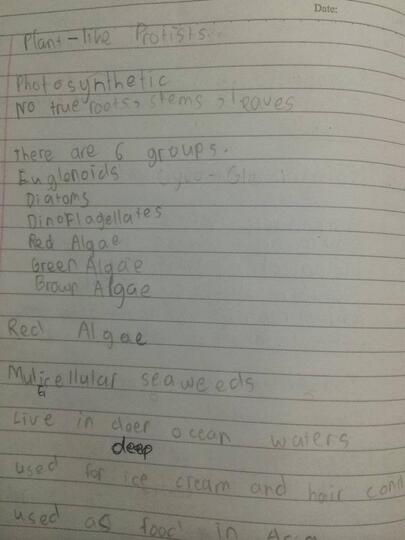 Date:
Plant-like Protists.
Photosynthetic
No true roots, stems, leaves
There are 6 groups.
Euglenoids
Diatoms
Dinoflagellates
Red Algae
Green Algae
Brown Algae
Red Algae
Multicellular seaweeds
Live in doer ocean waters
deep
used for ice cream and hair cond
used as food in